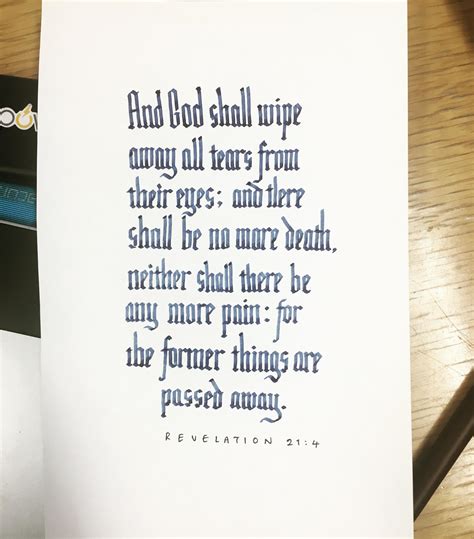 And God shall wipe
away all tears from
their eyes; and there
shall be no more death,
neither shall there be
any more pain: for
the former things are
passed away.
REVELATION 21:4